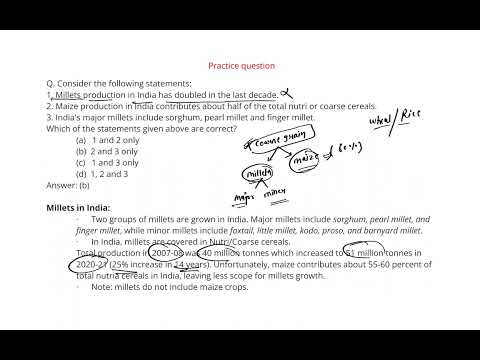 Practice question
Q. Consider the following statements:
1. Millets production in India has doubled in the last decade.
2. Maize production in India contributes about half of the total nutri or coarse cereals.
3. India's major millets include sorghum, pearl millet and finger millet.
Which of the statements given above are correct?
(a) 1 and 2 only
(b) 2 and 3 only
(c) 1 and 3 only
(d) 1, 2 and 3
Answer: (b)
wheat/Rice
coarse grain
millets
maize
major
minor
Millets in India:
· Two groups of millets are grown in India. Major millets include sorghum, pearl millet, and
finger millet, while minor millets include foxtail, little millet, kodo, proso, and barnyard millet.
· In India, millets are covered in Nutri/Coarse cereals.
Total production in 2007-08 was 40 million tonnes which increased to 51 million tonnes in
2020-21 (25% increase in 14 years). Unfortunately, maize contributes about 55-60 percent of
total nutria cereals in India, leaving less scope for millets growth.
· Note: millets do not include maize crops.